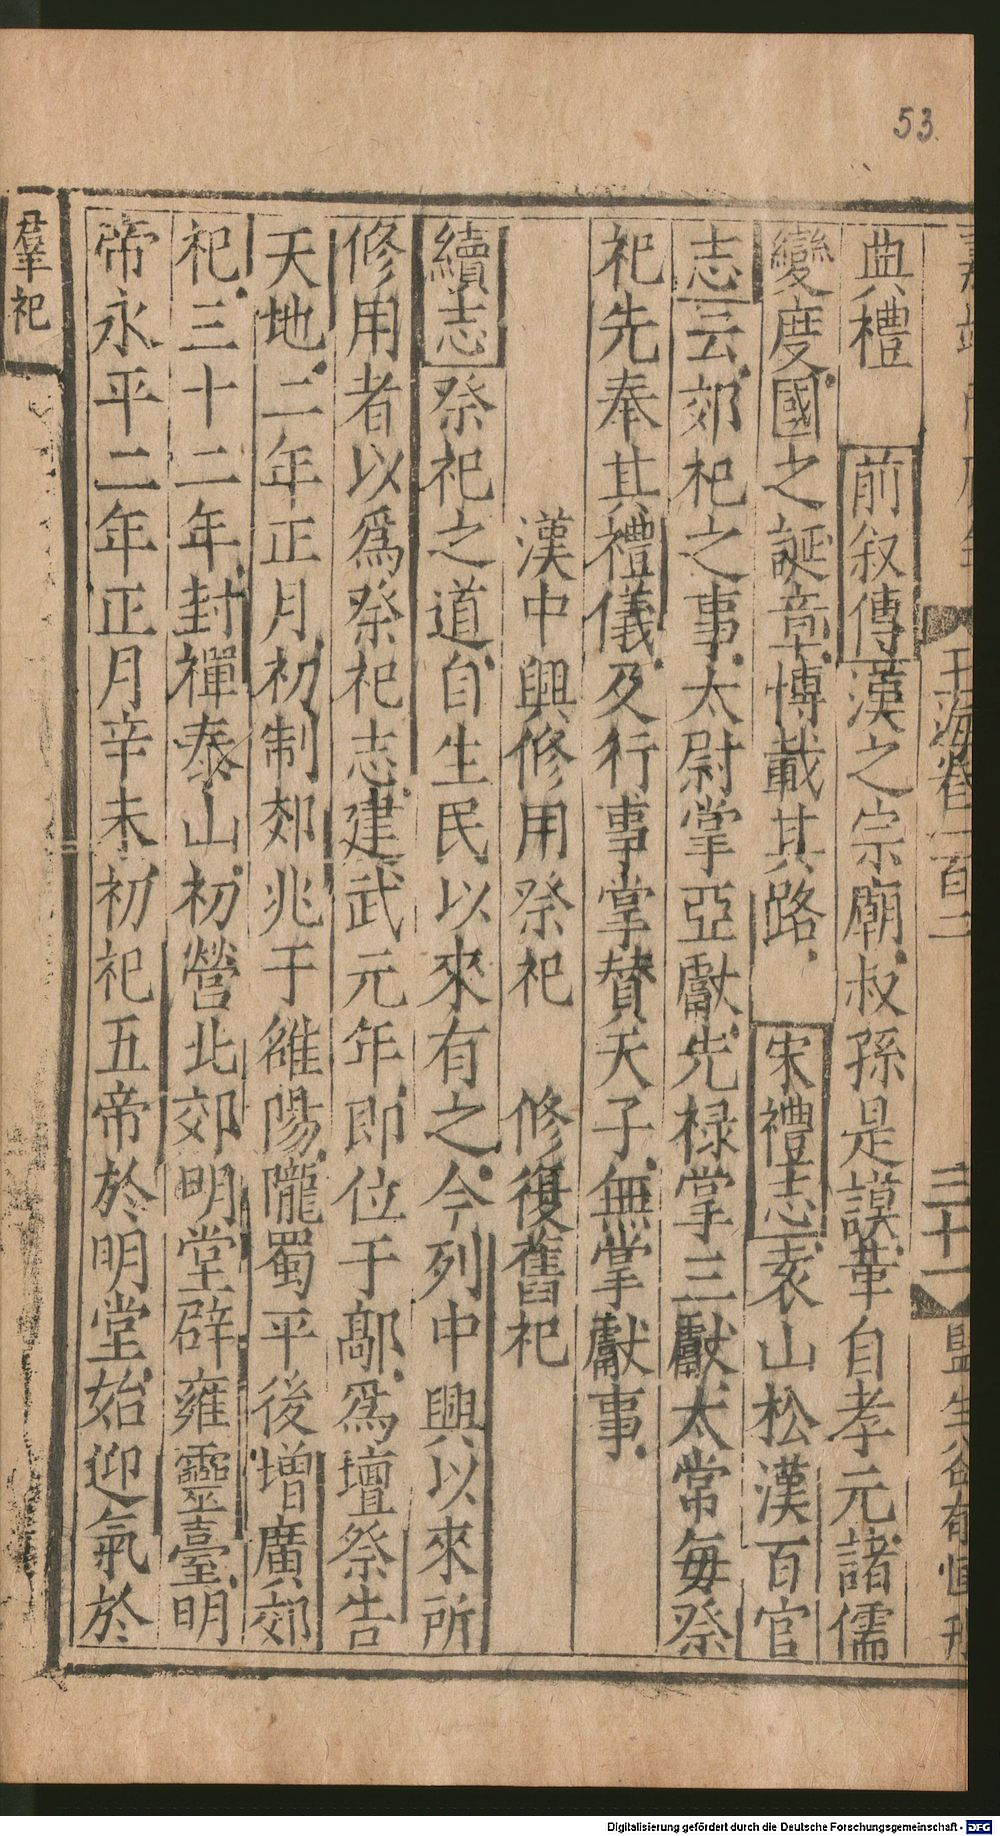 53
玉海卷一百二
三十一
典禮　前叙傳漢之宗廟叔孫是謨革自孝元諸儒
變度國之誕章博載其路　宋禮志袁山松漢百官
志云郊祀之事太尉掌亞獻光祿掌三獻太常毎祭
祀先奏其禮儀及行事掌賛天子無掌獻事
漢中興修用祭祀　修復舊祀
續志祭祀之道自生民以來有之今列中興以來所
修用者以爲祭祀志建武元年即位于鄗爲壇祭告
天地二年正月初制郊兆于雒陽隴蜀平後增廣郊
祀三十二年封禪泰山初營北郊明堂辟雍靈臺明
帝永平二年正月辛未初祀五帝於明堂始迎氣於
羣祀
Digitalisierung gefördert durch die Deutsche Forschungsgemeinschaft - DFG